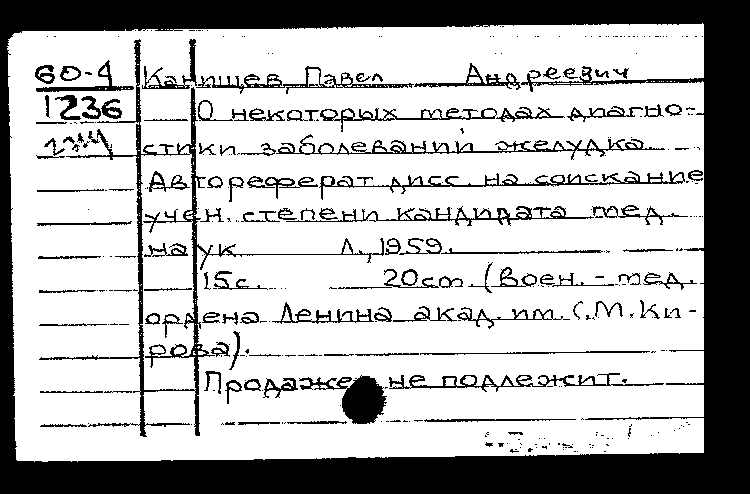 60-4 Канищев, Павел Андреевич
1236 О некоторых методах диагно-
стики заболеваний желудка.
Автореферат дисс. на соискание
учен. степени кандидата мед.
наук Л., 1959.
15с. 20см. (Воен.-мед.
ордена Ленина акад. им. С.М.Ки-
рова).
Продаже не подлежит.